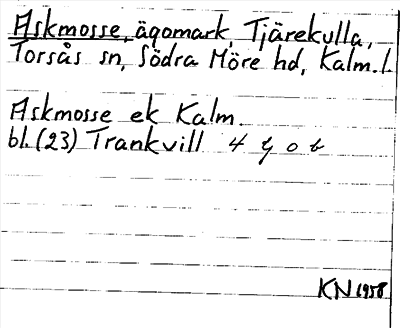 Askmosse, ägomark, Tjärekulla,
Torsås sn, Södra Möre hd, Kalm.l.
Askmosse ek Kalm.
bl. (23) Trankvill 4 g o b
KN 1958